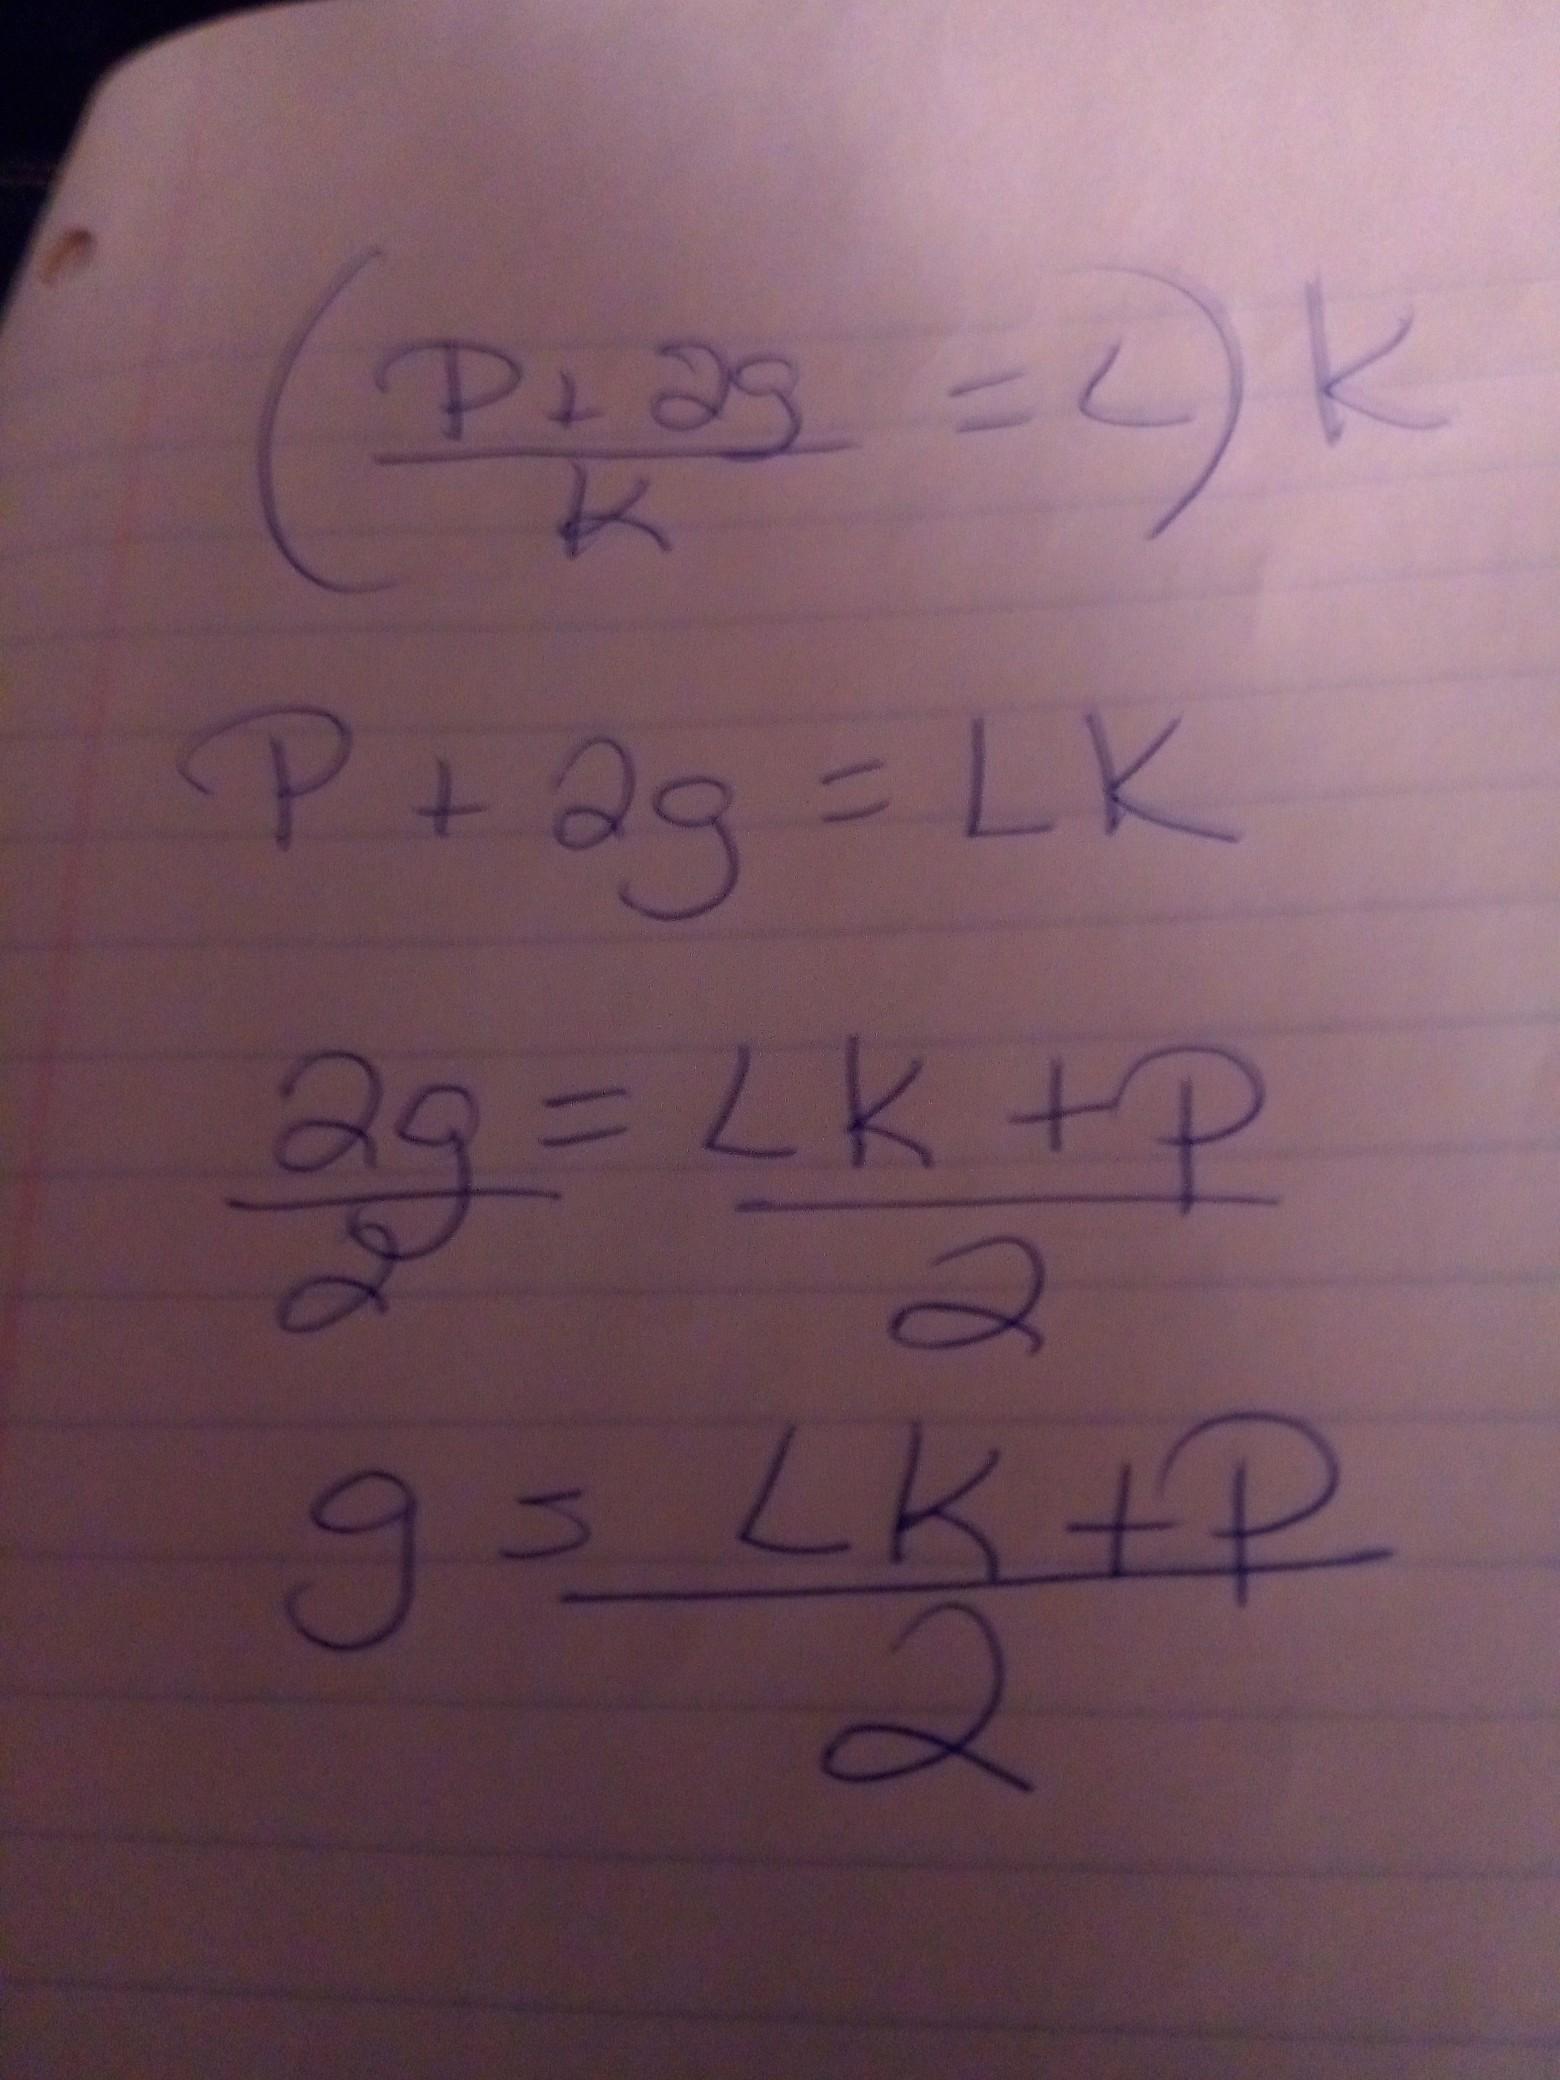 (P + 2g / K = L) K
P + 2g = LK
2g / 2 = LK + P / 2
g = LK + P / 2